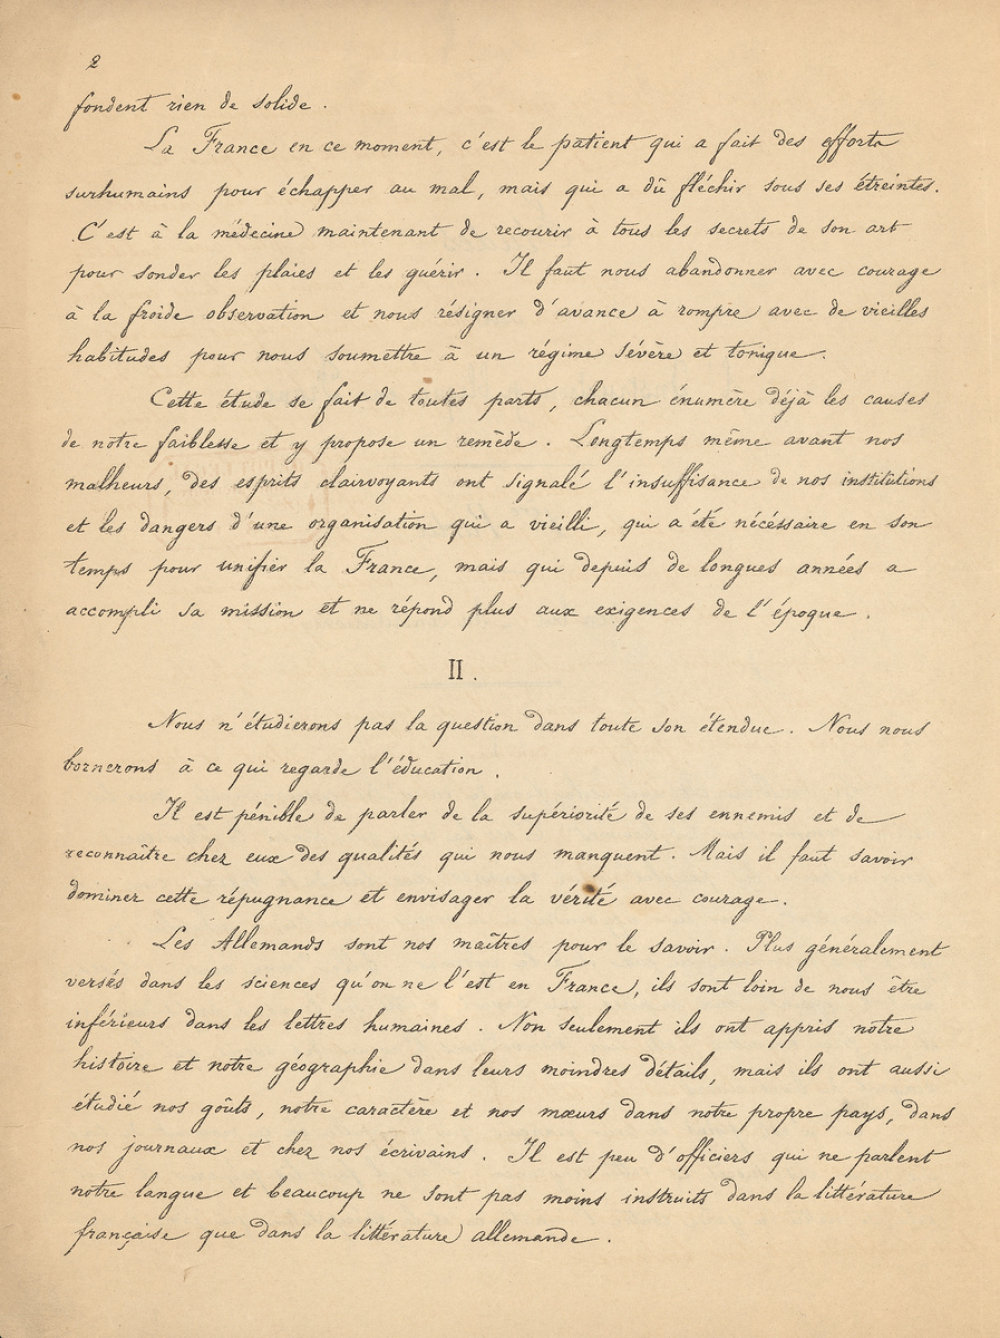 2
fondent rien de solide.
La France en ce moment, c'est le patient qui a fait des efforts
surhumains pour échapper au mal, mais qui a dû fléchir sous ses étreintes.
C'est à la médecine maintenant de recourir à tous les secrets de son art
pour sonder les plaies et les guérir. Il faut nous abandonner avec courage
à la froide observation et nous résigner d'avance à rompre avec de vieilles
habitudes pour nous soumettre à un régime sévère et tonique.
Cette étude se fait de toutes parts, chacun énumère déjà les causes
de notre faiblesse et y propose un remède. Longtemps même avant nos
malheurs, des esprits clairvoyants ont signalé l'insuffisance de nos institutions
et les dangers d'une organisation qui a vieilli, qui a été nécéssaire en son
temps pour unifier la France, mais qui depuis de longues années a
accompli sa mission et ne répond plus aux exigences de l'époque.
II.
Nous n'étudierons pas la question dans toute son étendue. Nous nous
bornerons à ce qui regarde l'éducation.
Il est pénible de parler de la supériorité de ses ennemis et de
reconnaître chez eux des qualités qui nous manquent. Mais il faut savoir
dominer cette répugnance et envisager la vérité avec courage.
Les Allemands sont nos maîtres pour le savoir. Plus généralement
versés dans les sciences qu'on ne l'est en France, ils sont loin de nous être
inférieurs dans les lettres humaines. Non seulement ils ont appris notre
histoire et notre géographie dans leurs moindres détails, mais ils ont aussi
étudié nos goûts, notre caractère et nos mœurs dans notre propre pays, dans
nos journaux et chez nos écrivains. Il est peu d'officiers qui ne parlent
notre langue et beaucoup ne sont pas moins instruits dans la littérature
française que dans la littérature allemande.